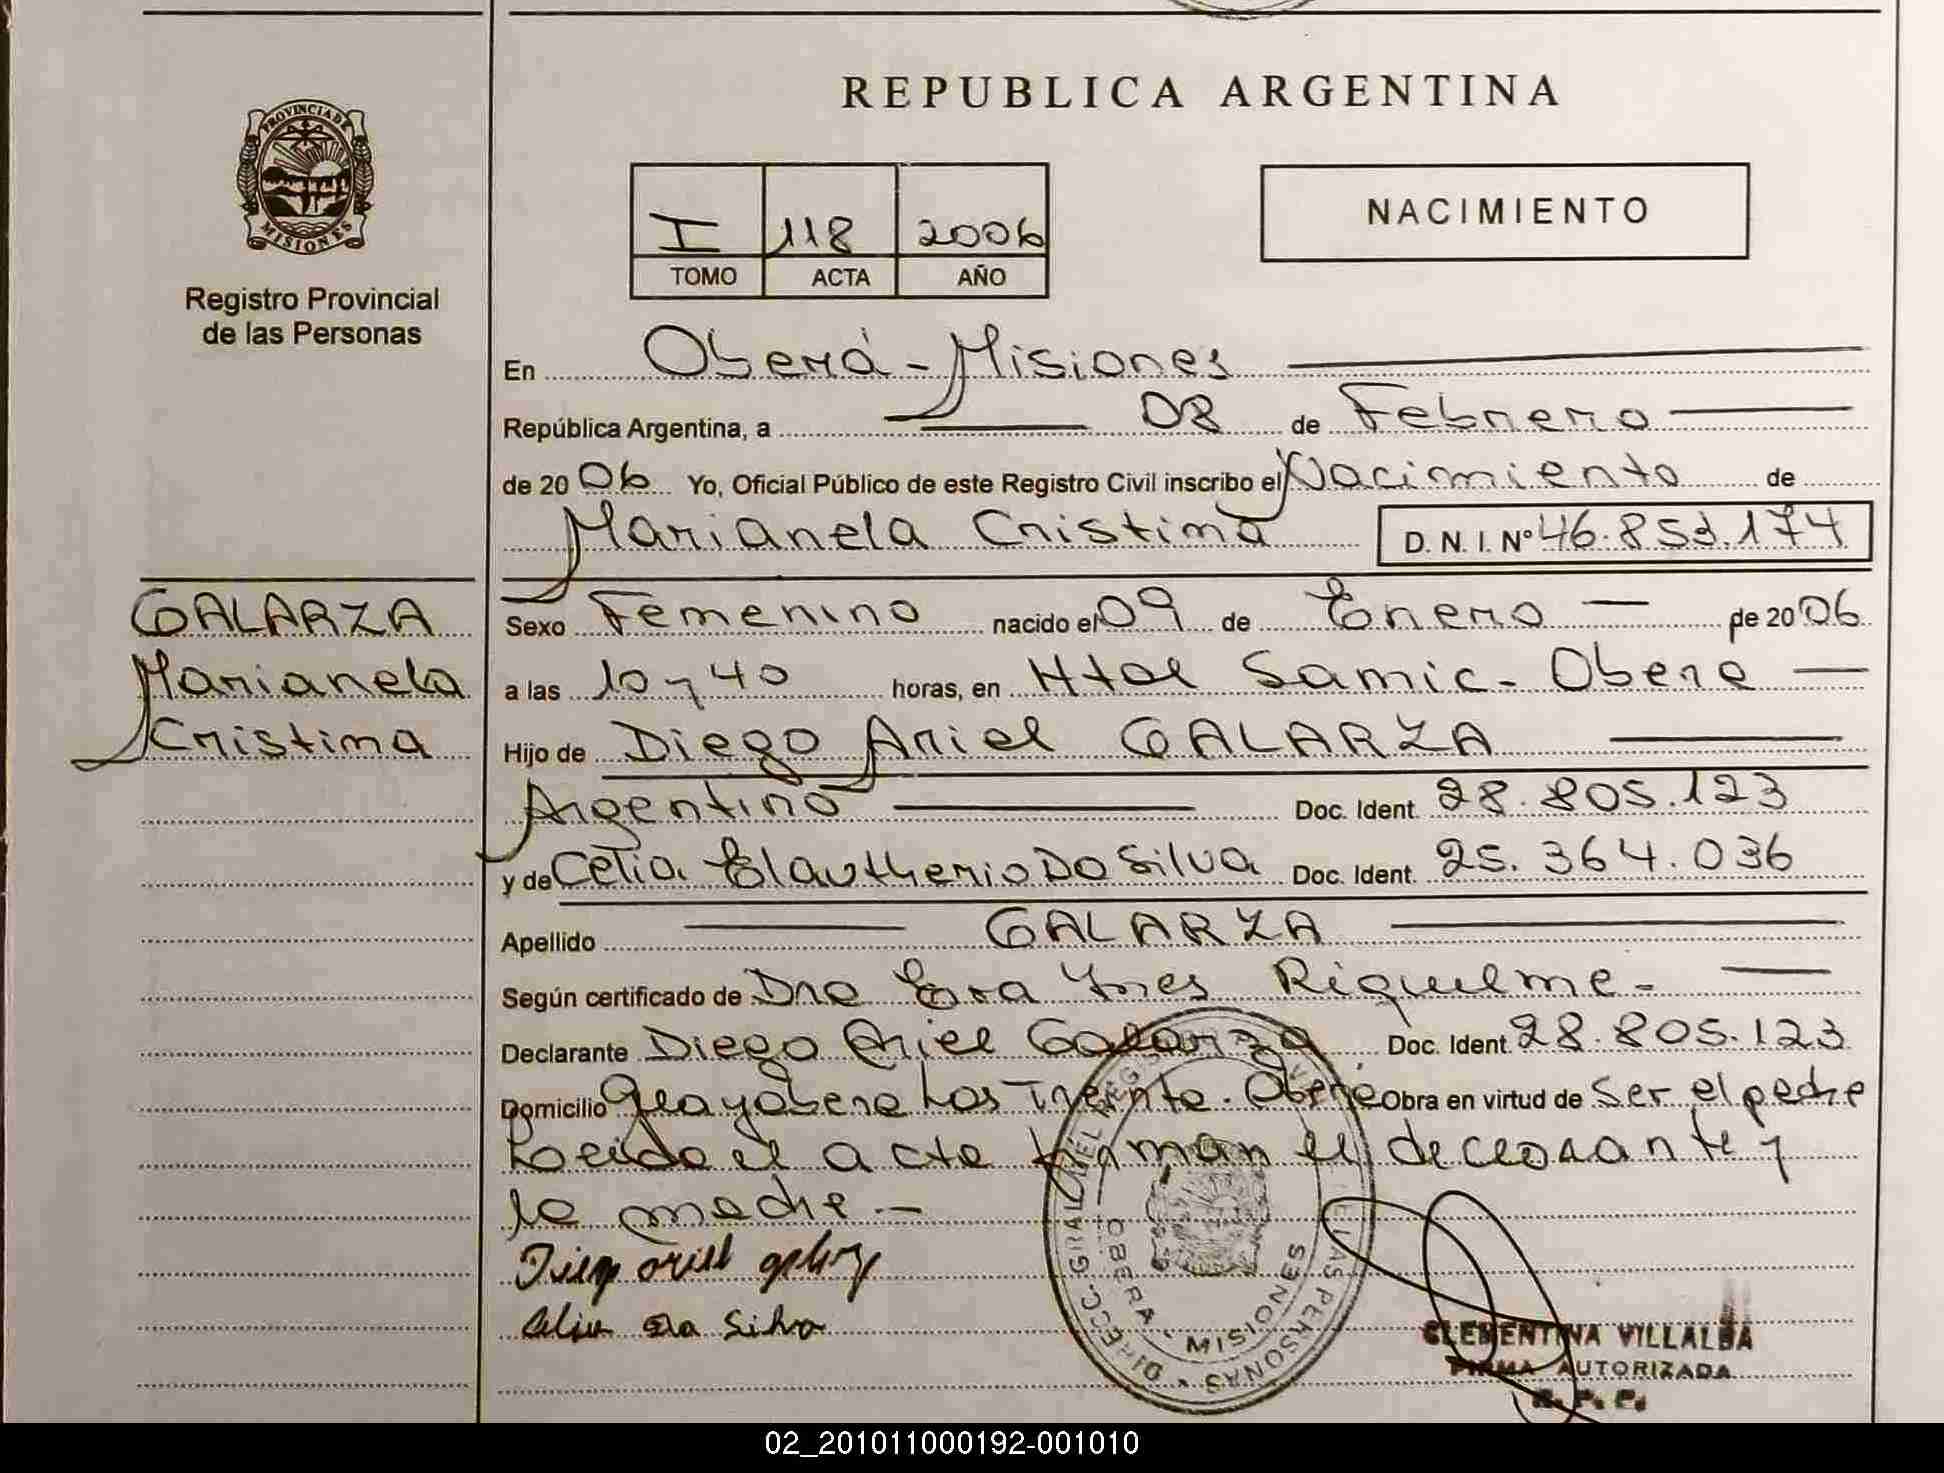 REPUBLICA ARGENTINA
PROVINCIA DE
MISIONES
Registro Provincial
de las Personas
I 118 2006
TOMO ACTA AÑO
NACIMIENTO
En Oberá - Misiones
República Argentina, a 08 de Febrero
de 2006 Yo, Oficial Público de este Registro Civil inscribo el Nacimiento de
Marianela Cristina D. N. I. Nº 46.853.174
GALARZA
Marianela
Cristina
Sexo Femenino nacido el 09 de Enero de 2006
a las 10 y 40 horas, en Htal Samic - Obera
Hijo de Diego Ariel GALARZA
Argentino Doc. Ident. 28.805.123
y de Celia Elautherio Da Silva Doc. Ident. 25.364.036
Apellido GALARZA
Según certificado de Dra Ynes Riquelme -
Declarante Diego Ariel Galarza Doc. Ident. 28.805.123
Domicilio Guayabera Los Treinta. Obera Obra en virtud de Ser el padre
Leido el acta firman el declarante y
la madre -
Diego ariel
Celia Da Silva
OBERA - MISIONES
CLEMENTINA VILLALBA
FIRMA AUTORIZADA
R. P. P.
02_201011000192-001010